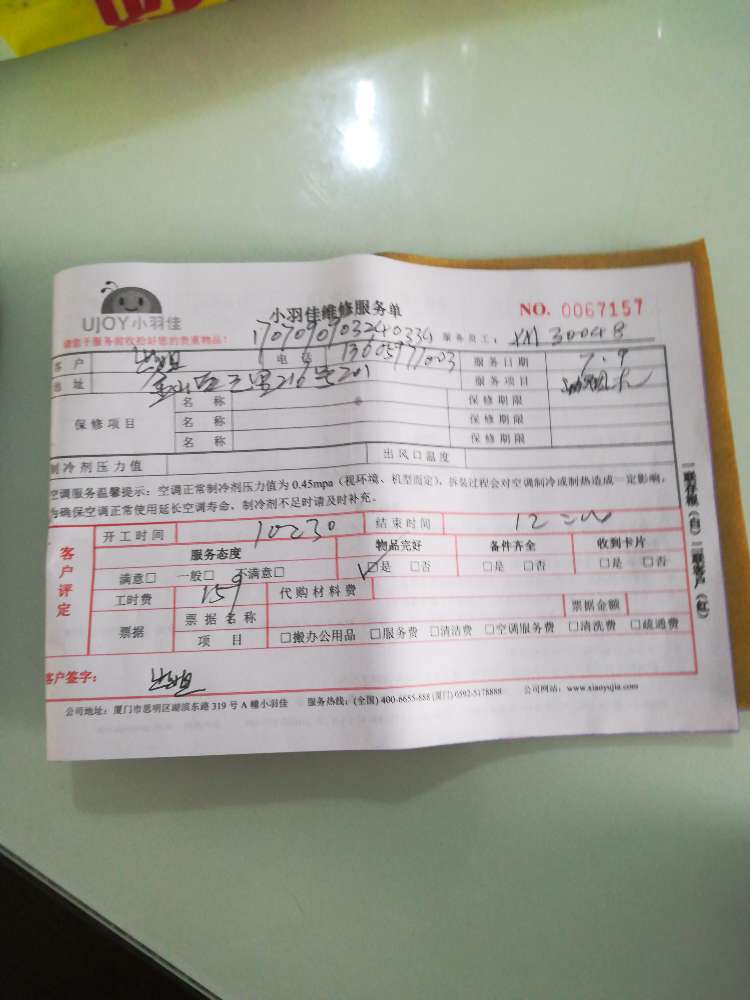 UJOY小羽佳
小羽佳维修服务单
NO. 0067157
请您于服务前收拾好您的贵重物品!
17070909032240334
服务员工: XM 30048
客户
电话 13605977003
服务日期 7.9
地址
216号201
服务项目
保修项目
名称
保修期限
名称
保修期限
名称
保修期限
制冷剂压力值
出风口温度
空调服务温馨提示:空调正常制冷剂压力值为0.45mpa(视环境、机型而定),拆装过程会对空调制冷或制热造成一定影响,
为确保空调正常使用延长空调寿命,制冷剂不足时请及时补充。
客户评定
开工时间 10230
结束时间 12
服务态度
物品完好
备件齐全
收到卡片
满意□ 一般□ 不满意□
□是 □否
□是 □否
□是 □否
工时费 159
代购材料费
票据
票据名称
票据金额
项目
□搬办公用品 □服务费 □清洁费 □空调服务费 □清洗费 □疏通费
客户签字:
公司地址:厦门市思明区湖滨东路319号A幢小羽佳 服务热线:(全国)400-6655-888(厦门)0592-5178888 公司网站:www.xiaoyujia.com
一联存根(白)二联客户(红)